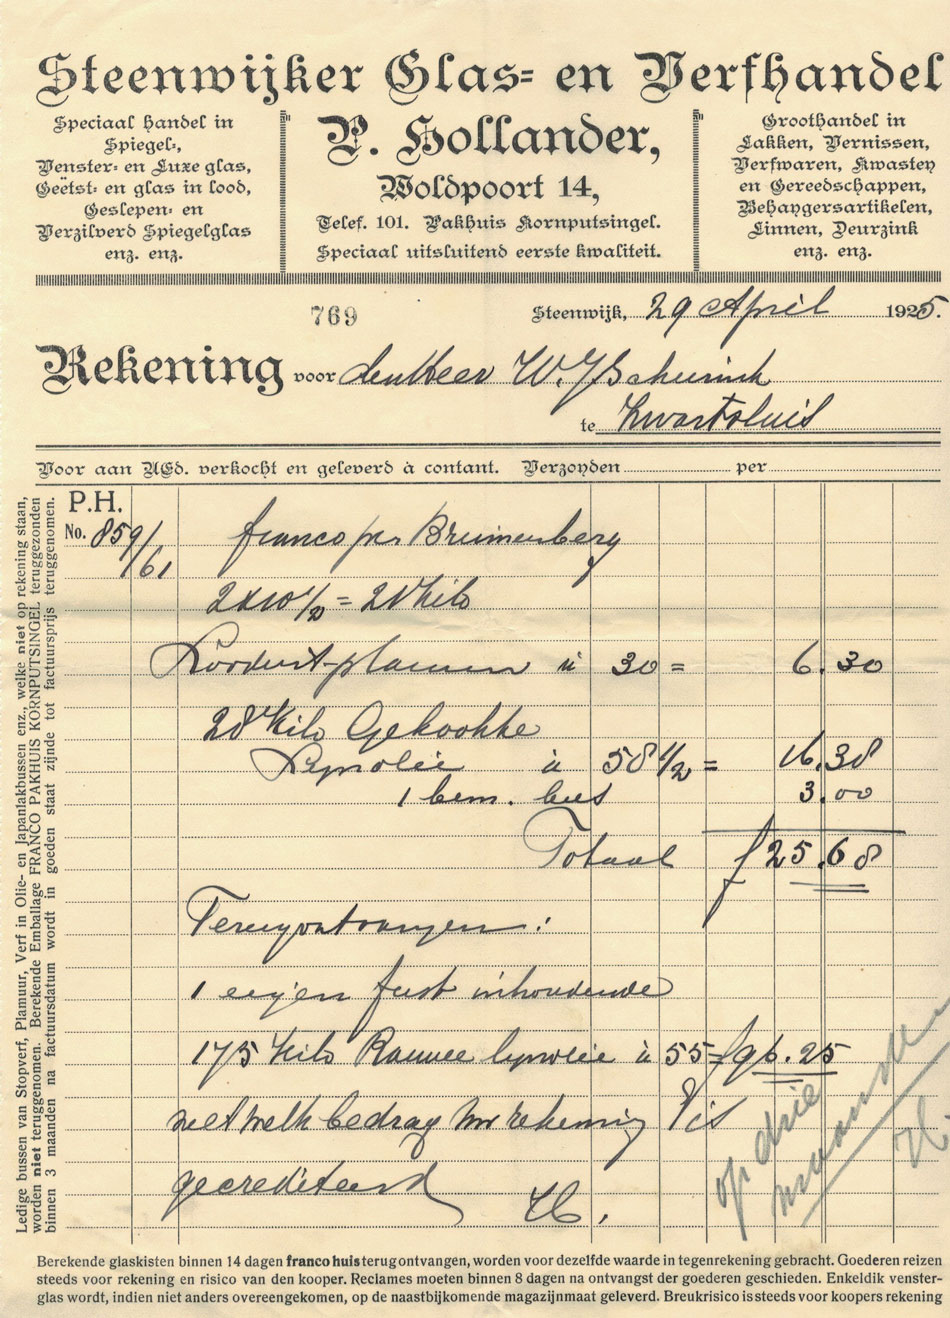 Steenwijker Glas- en Verfhandel
Speciaal handel in
Spiegel-,
Venster- en Luxe glas,
Geëtst- en glas in lood,
Geslepen- en
Verzilverd Spiegelglas
enz. enz.
P. Hollander,
Woldpoort 14,
Telef. 101. Pakhuis Kornputsingel.
Speciaal uitsluitend eerste kwaliteit.
Groothandel in
Lakken, Vernissen,
Verfwaren, Kwasten
en Gereedschappen,
Behangersartikelen,
Linnen, Deurzink
enz. enz.
769
Steenwijk, 29 April 1925.
Rekening voor den Heer W. J. Scheurink
te Zwartsluis
Voor aan UEd. verkocht en geleverd à contant. Verzonden per
P.H.
No. 859/61 franco per Bruinenberg
2 x 10 1/2 = 21 Kilo
plamuur à 30 = 6.30
28 Kilo Gekookte
Lynolie à 58 1/2 = 16.38
1 bem. bus 3.00
Totaal f 25.68
Terugontvangen:
1 eigen fust inhoudende
175 Kilo Rauwe lynolie à 55 = f 96.25
met welk bedrag Uw rekening is
gecrediteerd
H.
op drie
maanden
H.
Ledige bussen van Stopverf, Plamuur, Verf in Olie- en Japanlakbussen enz., welke niet op rekening staan,
worden niet teruggenomen. Berekende Emballage FRANCO PAKHUIS KORNPUTSINGEL teruggezonden
binnen 3 maanden na factuursdatum wordt in goeden staat zijnde tot factuursprijs teruggenomen.
Berekende glaskisten binnen 14 dagen franco huis terugontvangen, worden voor dezelfde waarde in tegenrekening gebracht. Goederen reizen
steeds voor rekening en risico van den kooper. Reclames moeten binnen 8 dagen na ontvangst der goederen geschieden. Enkeldik venster-
glas wordt, indien niet anders overeengekomen, op de naastbijkomende magazijnmaat geleverd. Breukrisico is steeds voor koopers rekening